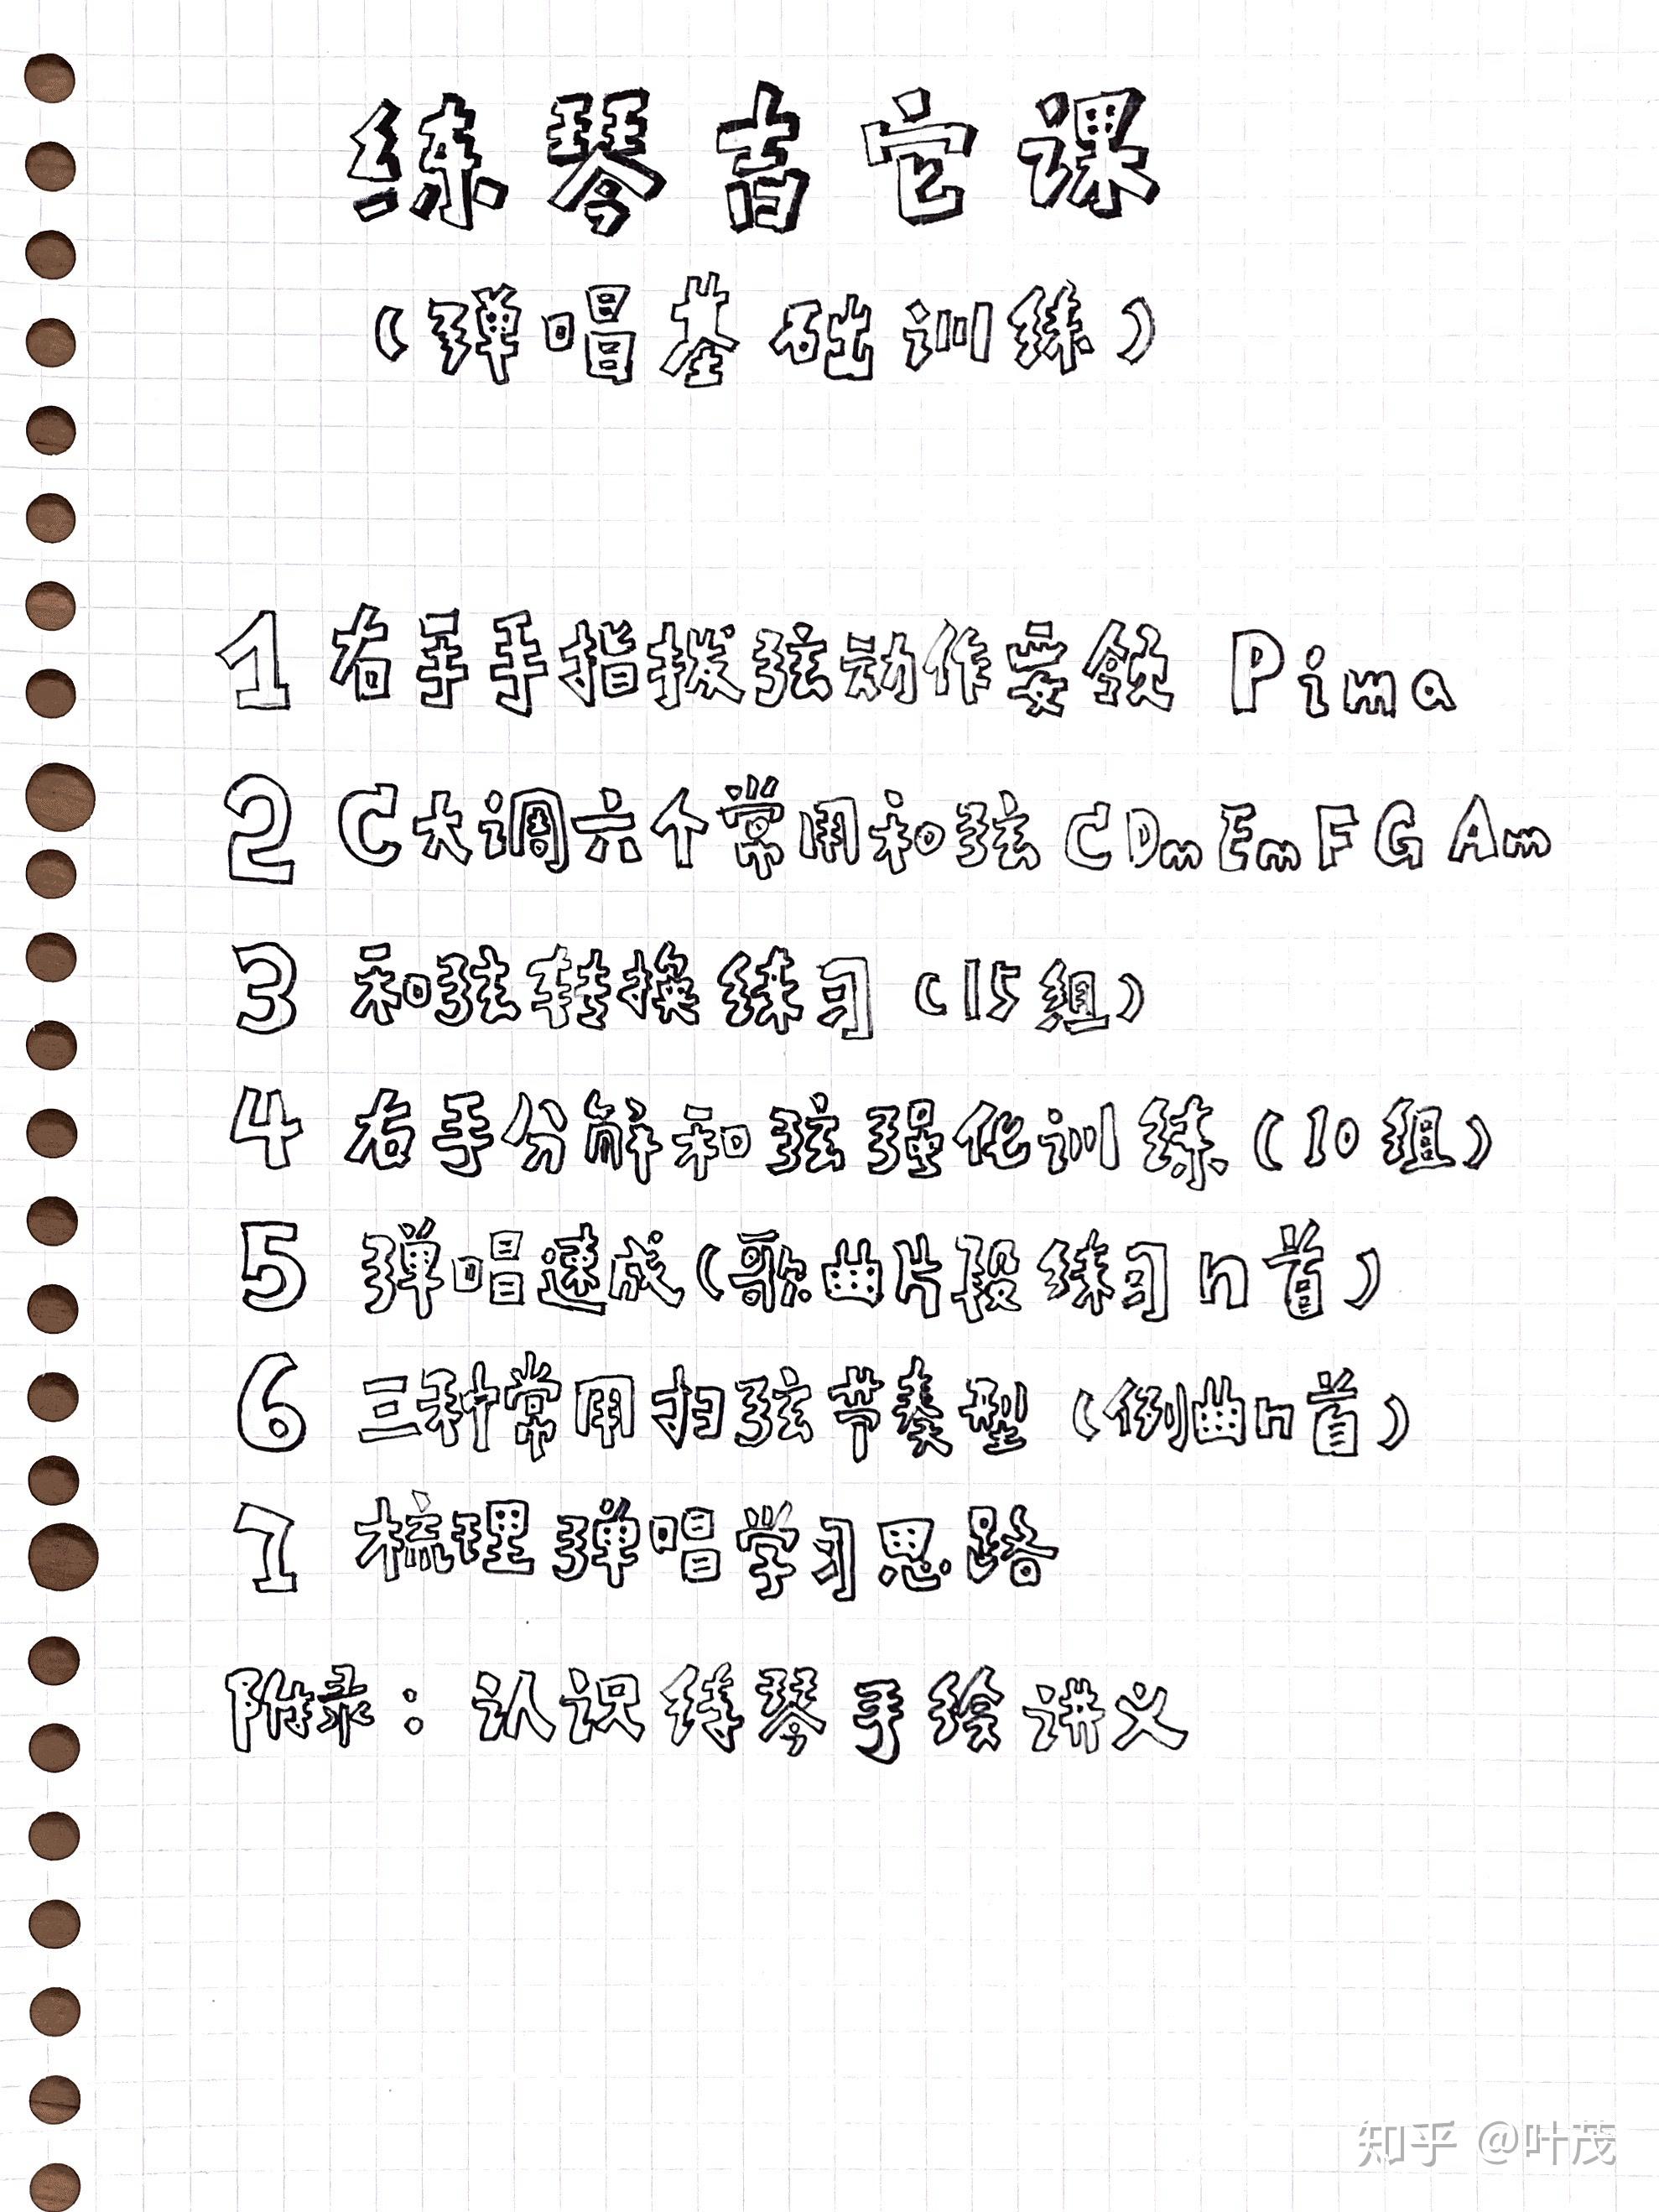 练琴吉它课
(弹唱基础训练)
1 右手手指拨弦动作要领 Pima
2 C大调六个常用和弦 C Dm Em F G Am
3 和弦转换练习(15组)
4 右手分解和弦强化训练(10组)
5 弹唱速成(歌曲片段练习n首)
6 三种常用扫弦节奏型(例曲n首)
7 梳理弹唱学习思路
附录:认识练琴手绘讲义
知乎 @叶茂